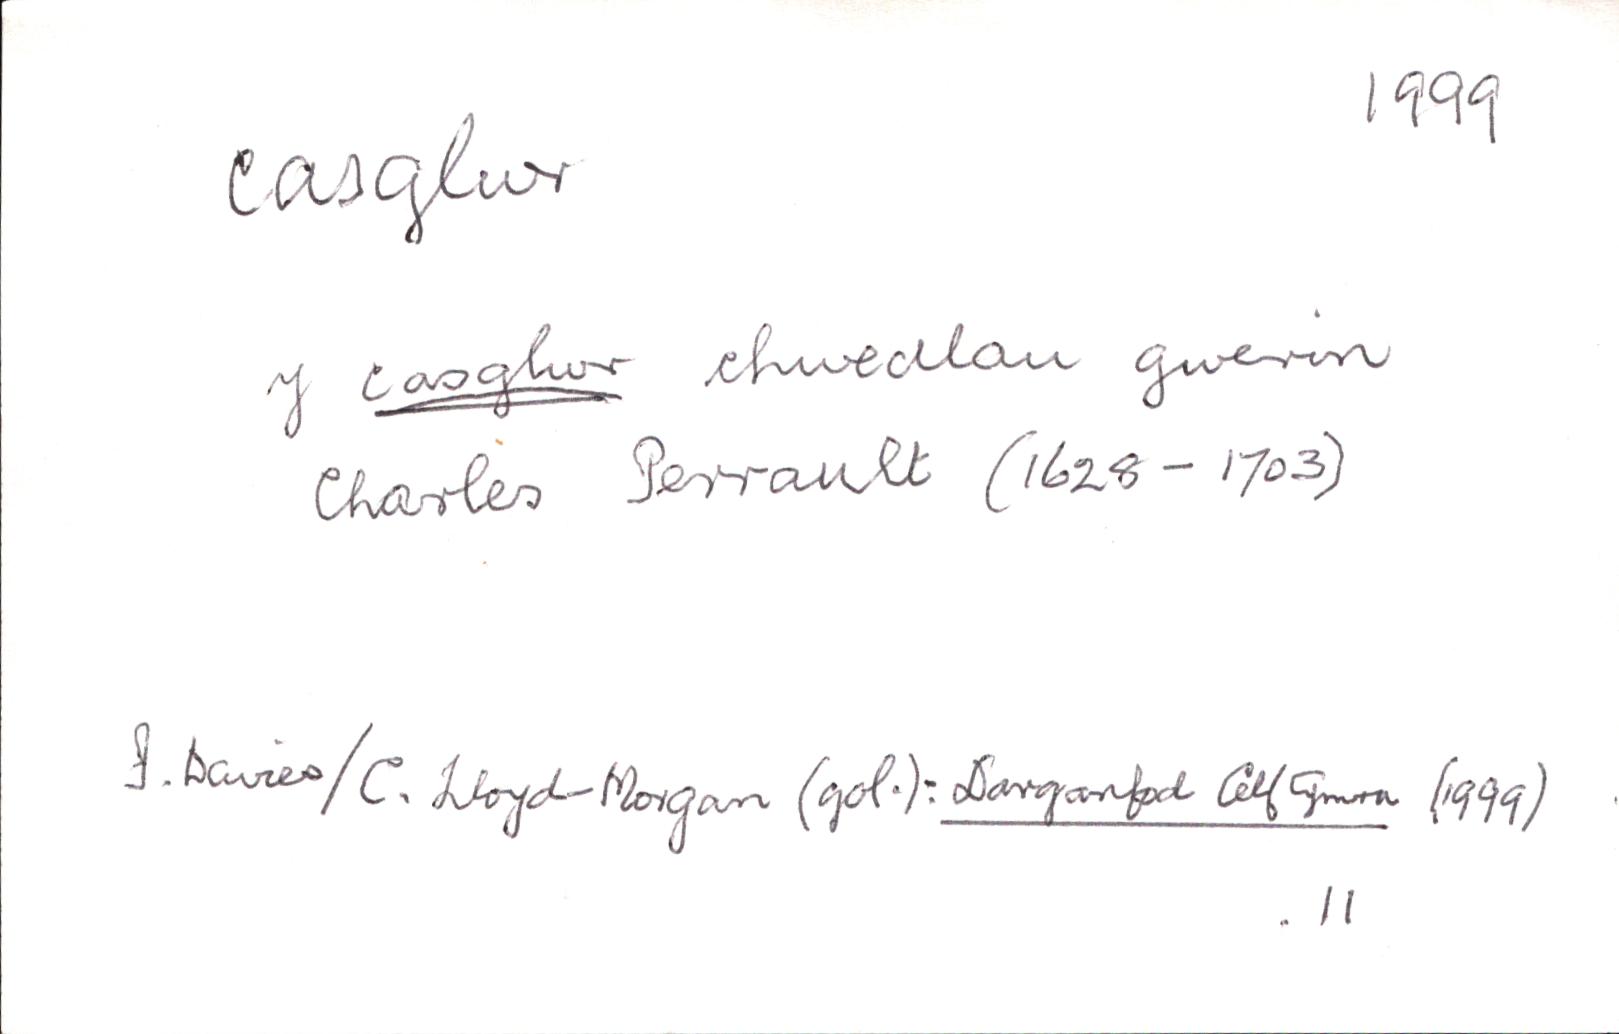 1999
casglwr
y casglwr chwedlau gwerin
Charles Perrault (1628-1703)
I. Davies/C. Lloyd-Morgan (gol.): Darganfod Celf Cymru (1999)
. 11